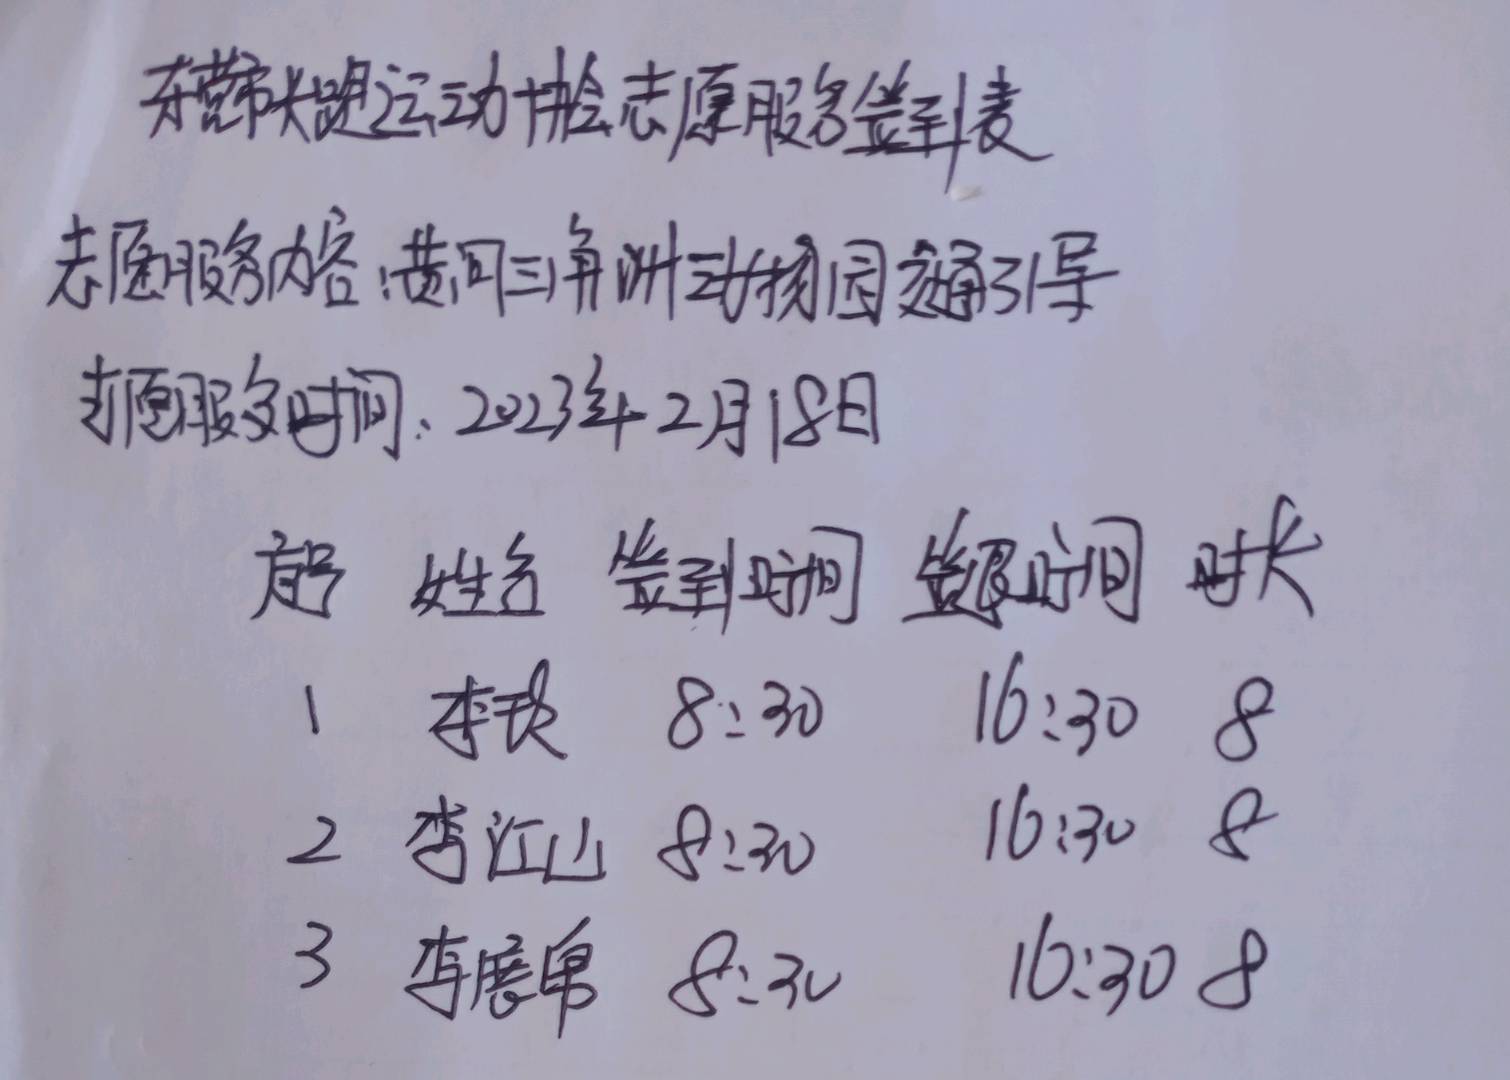 东营市长跑运动协会志愿服务签到表
志愿服务内容:黄河三角洲动物园交通引导
志愿服务时间:2023年2月18日
序号 姓名 签到时间 签退时间 时长
1 李玖 8:30 16:30 8
2 李江山 8:30 16:30 8
3 李展帛 8:30 16:30 8